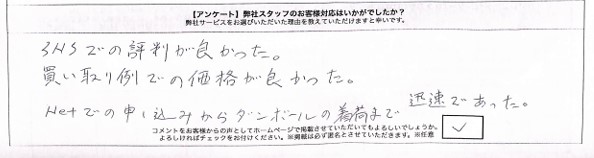 【アンケート】弊社スタッフのお客様対応はいかがでしたか？
弊社サービスをお選びいただいた理由を教えていただけますと幸いです。
SNSでの評判が良かった。
買い取り例での価格が良かった。
Netでの申し込みからダンボールの着荷まで迅速であった。
コメントをお客様からの声としてホームページで掲載させていただいてもよろしいでしょうか。
よろしければチェックをお付けください。※掲載は必ず匿名とさせていただきます。※任意
✓